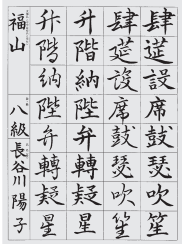 肆筵設席鼓瑟吹笙
肆筵設席鼓瑟吹笙
升階納陛弁轉疑星
升階納陛弁轉疑星
福山 八級 長谷川陽子